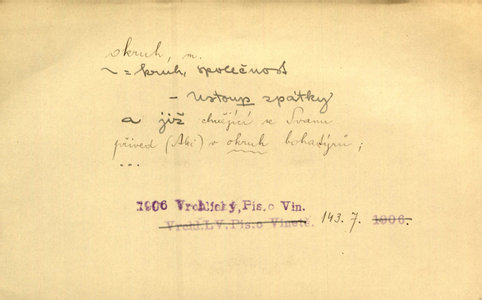 okruh, m.
~ = kruh, společnost
- Ustoup zpátky
a již chvějící se Svanu
přived (Aki) v okruh bohatýrů ;
...
1906 Vrchlický, Pís. o Vin.
Vrchl. V. Pís. o Vinetě. 143. 7. 1906.